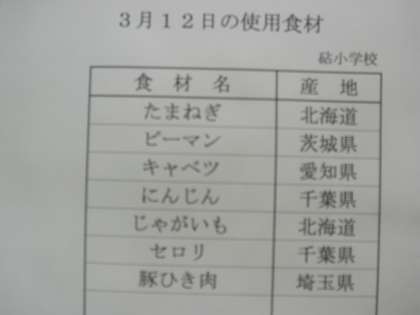 3月12日の使用食材
砧小学校
食 材 名 産 地
たまねぎ 北海道
ピーマン 茨城県
キャベツ 愛知県
にんじん 千葉県
じゃがいも 北海道
セロリ 千葉県
豚ひき肉 埼玉県